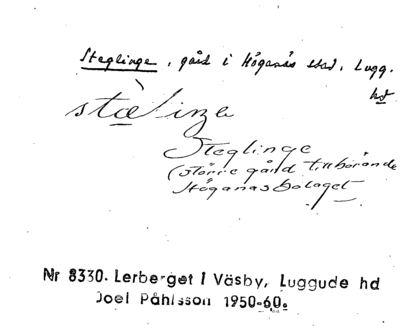 Steglinge, gård i Höganäs stad, Lugg.
hd
Steglinge
(större gård tillhörande
Höganäsbolaget
Nr 8330. Lerberget i Väsby, Luggude hd
Joel Påhlsson 1950-60.